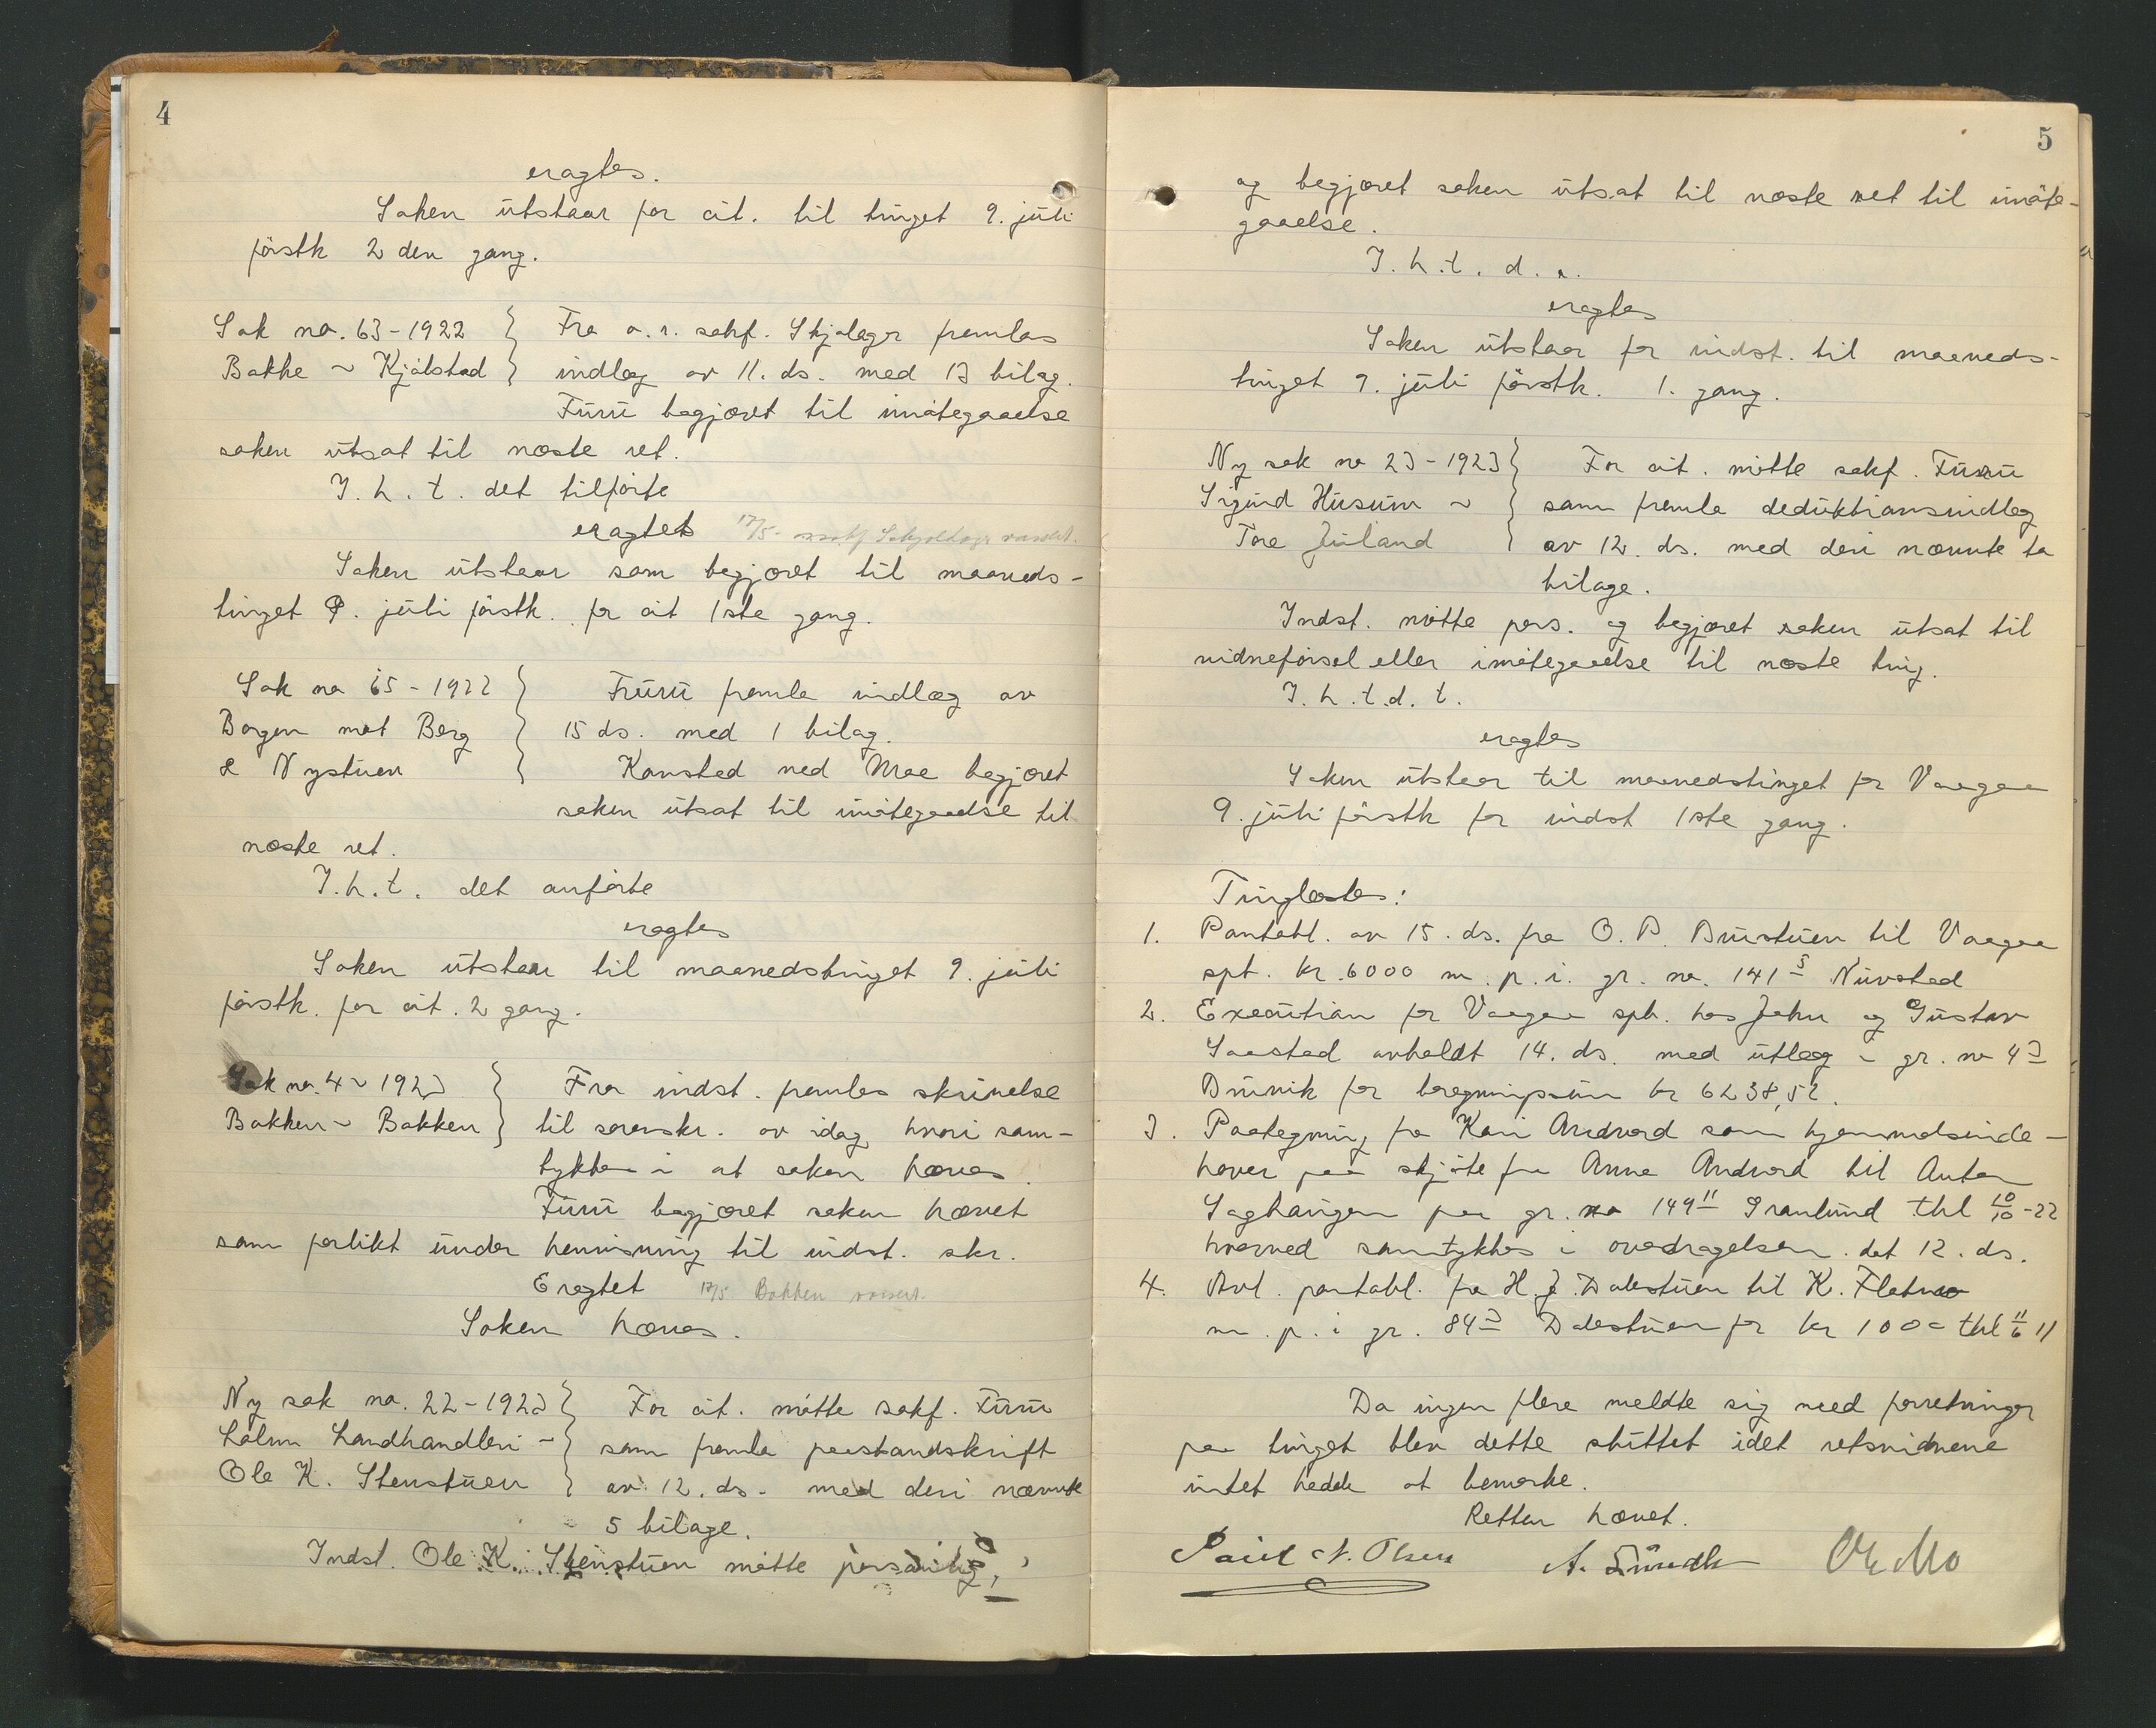 4
eragtes.
Saken utstaar for cit. til tinget 9. juli
førstk 2 den gang.
Sak no. 63-1922
Bakke ~ Kjølstad
Fra o.r. sakf. Skjølagr fremlas
indlæg av 11. ds. med 13 bilag.
Furu begjæret til imøtegaaelse
saken utsat til næste ret.
I. h. t. det tilførte
eragtet 12/5
Saken utstaar som begjæret til maaneds-
tinget 9. juli førstk. for cit 1ste gang.
Sak no 65-1922
Borgen mot Berg
& Nystuen
Furu fremla indlæg av
15 ds. med 1 bilag.
Kansted ved Moe begjæret
saken utsat til imøtegaaelse til
næste ret.
I.h.t. det anførte
eragtes
Saken utstaar til maanedstinget 9. juli
førstk. for cit. 2 gang.
Sak no. 4 ~ 1923
Bakken ~ Bakken
Fra indst. fremlas skrivelse
til sorenskr. av idag hvori sam-
tykkes i at saken hæves.
Furu begjæret saken hævet
som forlikt under henvisning til indst. skr.
Eragtet 12/5 Bakken
Saken hæves.
Ny sak no. 22-1923
Lalm Landhandleri ~
Ole K. Stenstuen
For cit. møtte sakf. Furu
som fremla paastandskrift
av 12. ds. med deri nævnte
5 bilage.
Indst. Ole K. Stenstuen møtte personlig,
5
og begjæret saken utsat til næste ret til imøte-
gaaelse.
I. h. t. d. a.
eragtes
Saken utstaar for indst. til maaneds-
tinget 9. juli førstk. 1. gang.
Ny sak no 23-1923
Sigurd Husum ~
Tore Juland
For cit. møtte sakf. Furu
som fremla deduktionsindlæg
av 12. ds. med deri nævnte to
bilage.
Indst. møtte pers. og begjæret saken utsat til
vidneførsel eller imøtegaaelse til næste ting.
I. h. t. d. t.
eragtes
Saken utstaar til maanedstinget for Vaagaa
9. juli førstk for indst 1ste gang.
Tinglæstes:
1. Pantobl. av 15. ds. fra O. P. Bustuen til Vaagaa
spb. kr. 6000 m. p. i. gr. no. 141 5 Nurstad
2. Execution for Vaagaa spb. hos John og Gustav
Saastad avholdt 14. ds. med utlæg i gr. no 4 3
for beregningssum kr 6238,52.
3. Paategning fra Kari Andvord som hjemmelsinde-
haver paa skjøte fra Anne Andvord til Anton
Saghaugen paa gr. no 149 11 Granlund thl 10/10-22
hvorved samtykkes i overdragelsen. dat 12. ds.
4. Avl. pantobl. fra H. J. Dalestuen til K. Flatmo
m. p. i gr. 84 3 Dalestuen for kr 1000 thl 11/6 11
Da ingen flere meldte sig med forretninger
paa tinget blev dette sluttet idet retsvidnene
intet hadde at bemerke.
Retten hævet.
Paul N. Olsen A. Sundli O. Mo